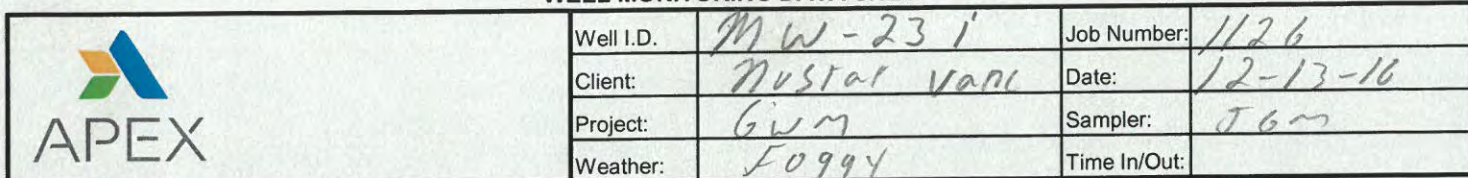 APEX
Well I.D. MW-23i Job Number: 1126
Client: Nustar Vanc Date: 12-13-16
Project: GWM Sampler: JGM
Weather: Foggy Time In/Out: